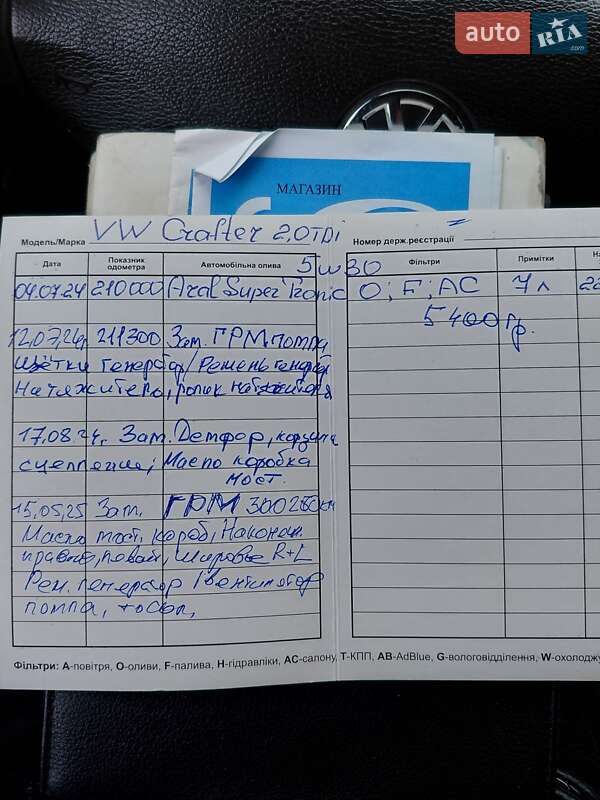 auto RIA .com
МАГАЗИН
Модель/Марка VW Crafter 2,0TDi Номер держ.реєстрації
Дата Показник одометра Автомобільна олива Фільтри Примітки
5w30
04.07.24 210000 Aral Super Tronic O; F; AC 7л
5400гр.
12.07.24г 211300 Зам. ГРМ помпа
щётки генератор/Ремень генер
Натяжителя, ролик натяжителя
17.08.24г. Зам. Демпфер, корзина
сцепления; Масло коробка
мост.
15.05.25 Зам. ГРМ 300200км
Масло мост, короб, Наконеч.
правый, левый, шаровые R+L
Рем. генератор / вентилятор
помпа, тосол,
Фільтри: А-повітря, О-оливи, F-палива, Н-гідравліки, АС-салону, Т-КПП, AB-AdBlue, G-вологовідділення, W-охолодж